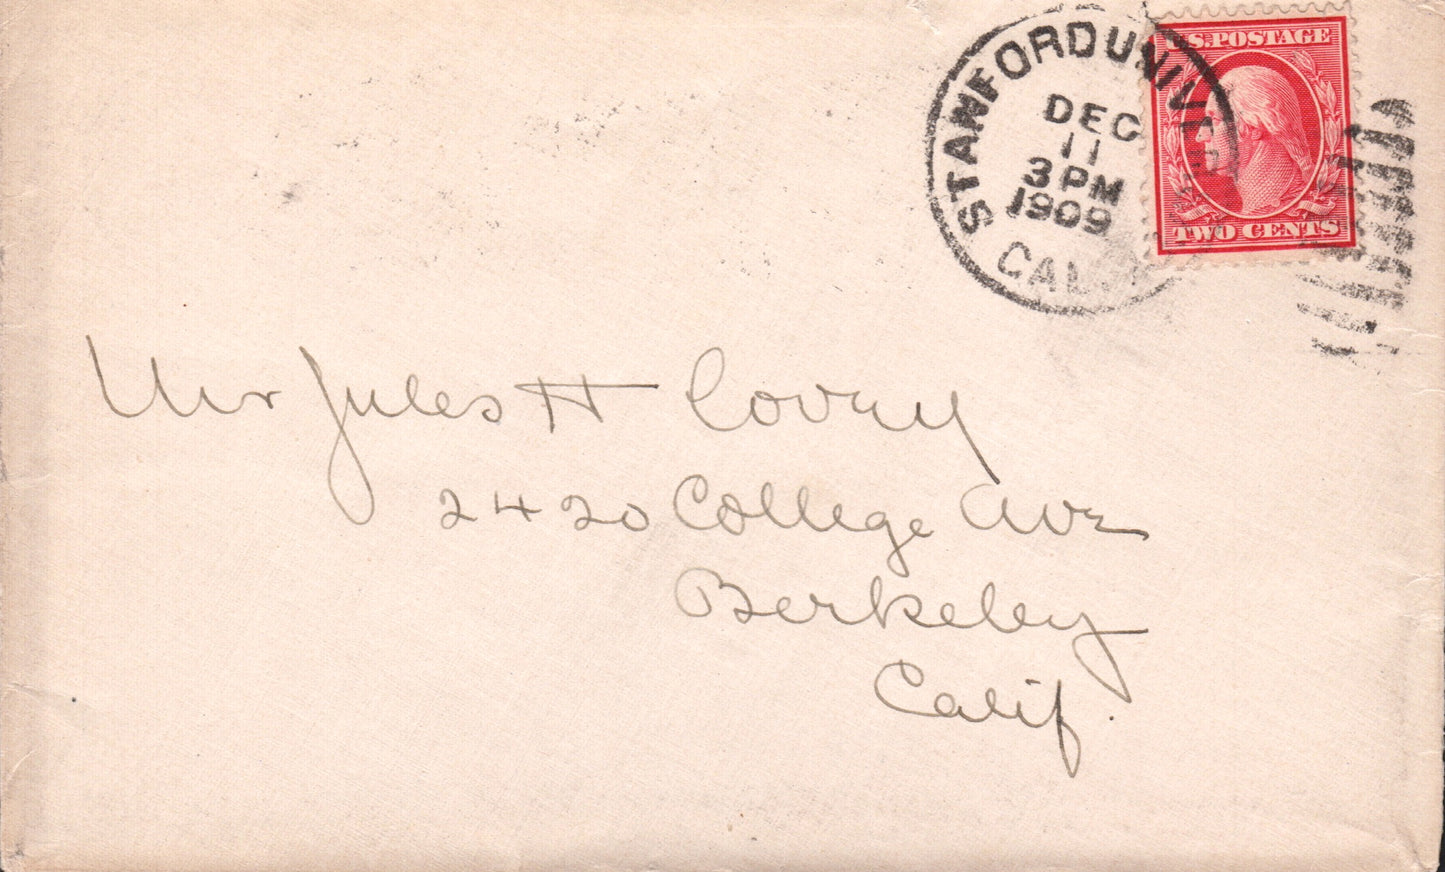 STANFORD UNIVERSITY
DEC
11
3 PM
1909
CAL.
U.S. POSTAGE
TWO CENTS
Mr Jules H Covey
2420 College Ave
Berkeley
Calif.